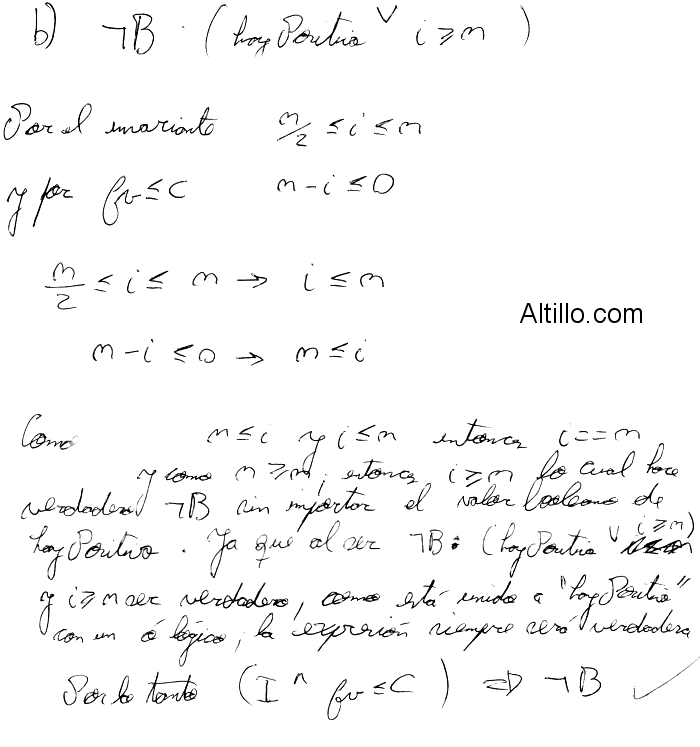 b) ¬B : (hay Positivo ∨ i ≥ n)
Por el invariante n/2 ≤ i ≤ n
y por fv ≤ C n - i ≤ 0
n/2 ≤ i ≤ n → i ≤ n
Altillo.com
n - i ≤ 0 → n ≤ i
Como n ≤ i y i ≤ n entonces i == n
y como n ≥ n, entonces i ≥ n lo cual hace
verdadero ¬B sin importar el valor booleano de
hay Positivo. Ya que al ser ¬B : (hay Positivo ∨ i ≥ n)
y i ≥ n ser verdadero, como está unido a "hay Positivo"
con un ó lógico, la expresión siempre será verdadera
Por lo tanto (I ^ fv ≤ C) ⇒ ¬B ✓